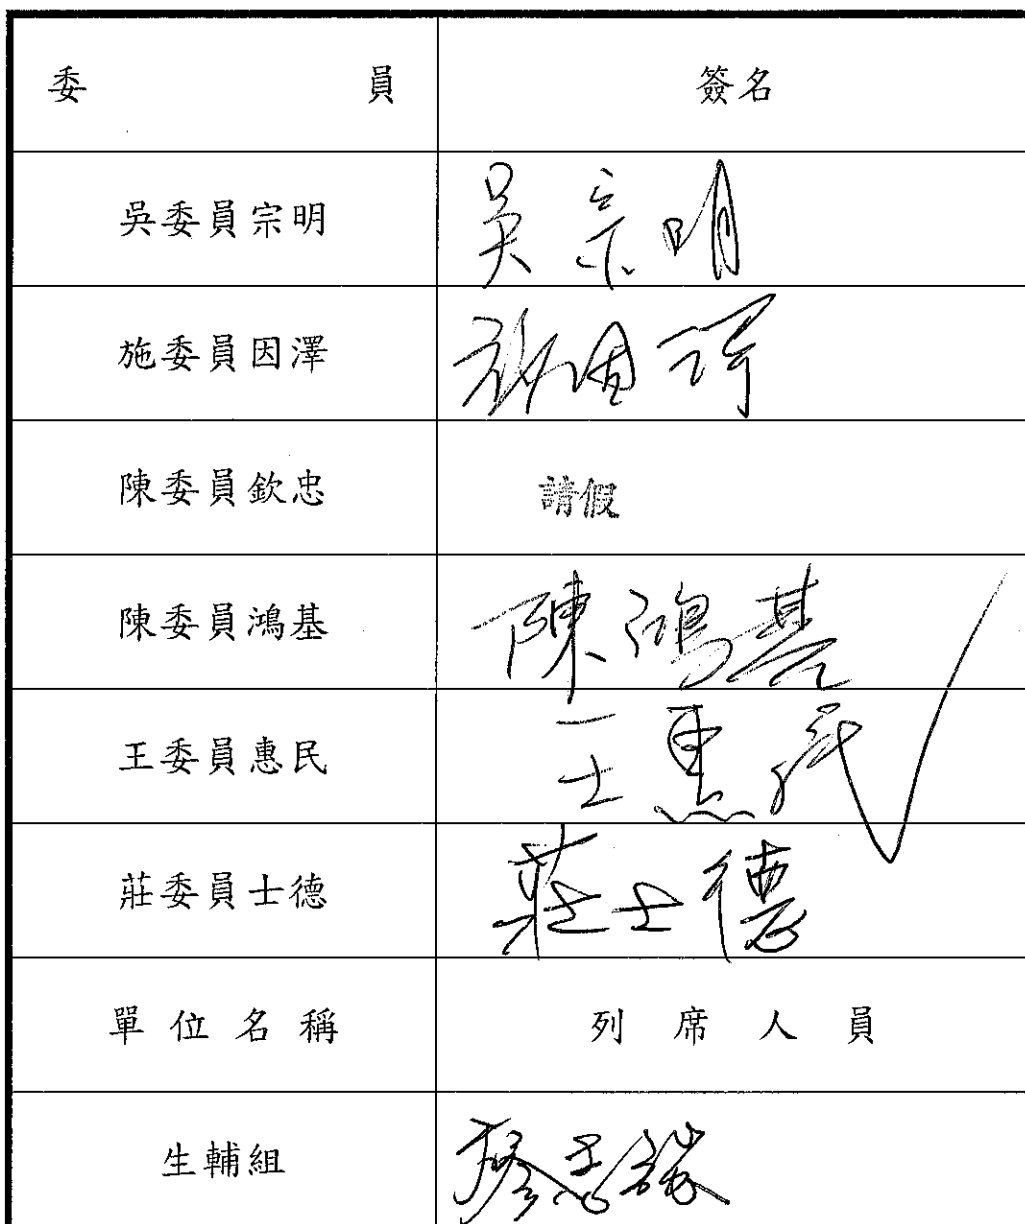 委員 簽名
吳委員宗明 吳宗明
施委員因澤 施因澤
陳委員欽忠 請假
陳委員鴻基 陳鴻基
王委員惠民 王惠民
莊委員士德 莊士德
單位名稱 列席人員
生輔組